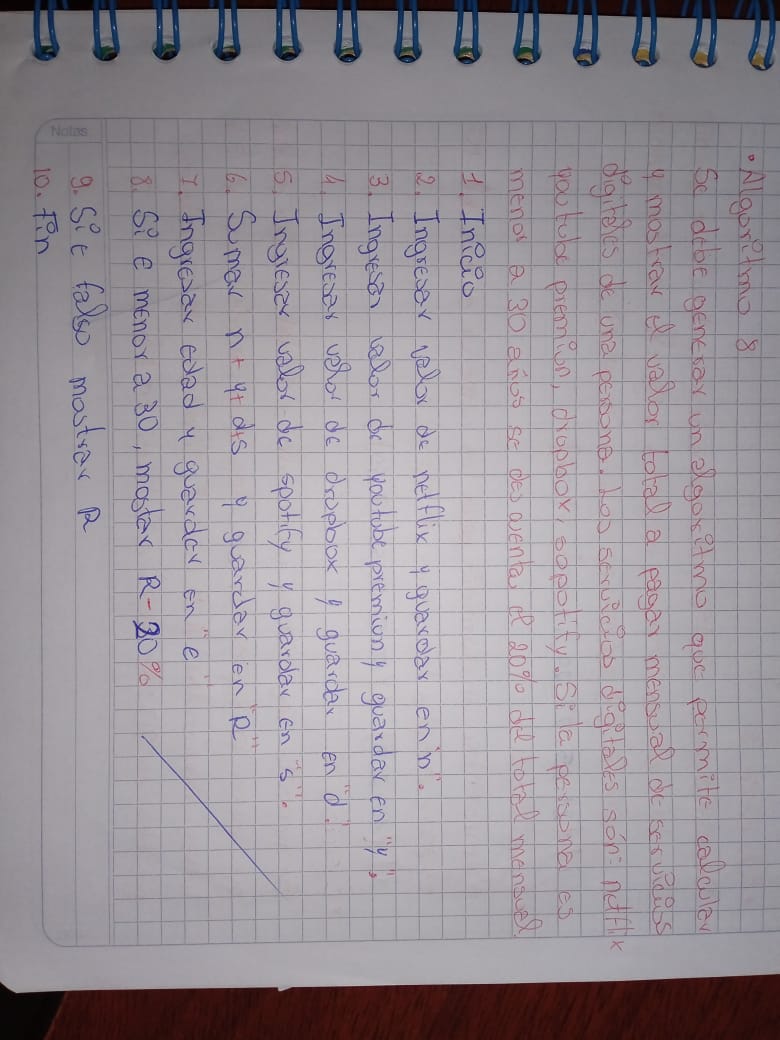 • Algoritmo 8
Se debe generar un algoritmo que permite calcular
y mostrar el valor total a pagar mensual de servicios
digitales de una persona. Los servicios digitales son: netflix
youtube premiun, dropbox, sopotify. Si la persona es
menor a 30 años se descuenta el 20% del total mensual.
1. Inicio
2. Ingresar valor de netflix y guardar en "n".
3. Ingresar valor de youtube premiun y guardar en "y".
4. Ingresar valor de dropbox y guardar en "d".
5. Ingresar valor de spotify y guardar en "s".
6. Sumar n + y + d+s y guardar en "R"
7. Ingresar edad y guardar en "e"
8. Si e menor a 30, mostar R-20%
9. Si e falso mostrar R
10. Fin
Notas